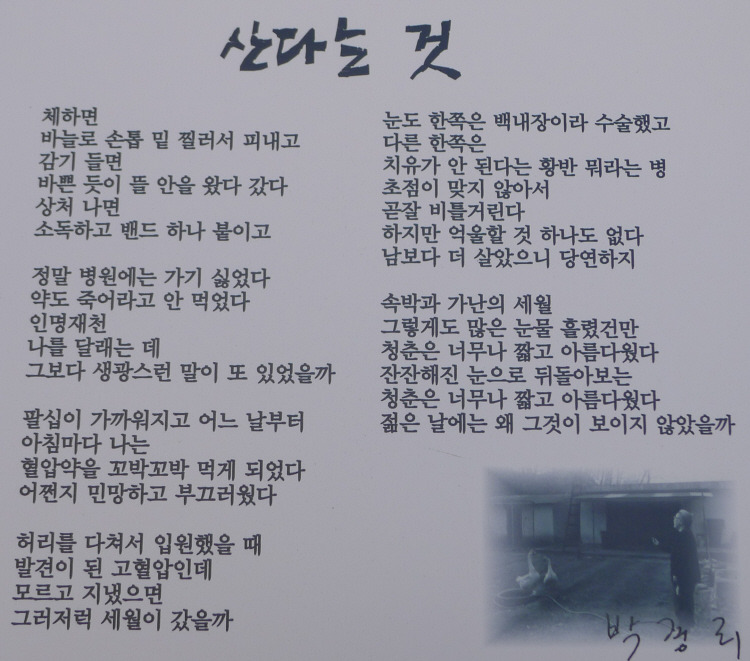 산다는 것
체하면
바늘로 손톱 밑 찔러서 피내고
감기 들면
바쁜 듯이 뜰 안을 왔다 갔다
상처 나면
소독하고 밴드 하나 붙이고
정말 병원에는 가기 싫었다
약도 죽어라고 안 먹었다
인명재천
나를 달래는 데
그보다 생광스런 말이 또 있었을까
팔십이 가까워지고 어느 날부터
아침마다 나는
혈압약을 꼬박꼬박 먹게 되었다
어쩐지 민망하고 부끄러웠다
허리를 다쳐서 입원했을 때
발견이 된 고혈압인데
모르고 지냈으면
그러저럭 세월이 갔을까
눈도 한쪽은 백내장이라 수술했고
다른 한쪽은
치유가 안 된다는 황반 뭐라는 병
초점이 맞지 않아서
곧잘 비틀거린다
하지만 억울할 것 하나도 없다
남보다 더 살았으니 당연하지
속박과 가난의 세월
그렇게도 많은 눈물 흘렸건만
청춘은 너무나 짧고 아름다웠다
잔잔해진 눈으로 뒤돌아보는
청춘은 너무나 짧고 아름다웠다
젊은 날에는 왜 그것이 보이지 않았을까
박경리